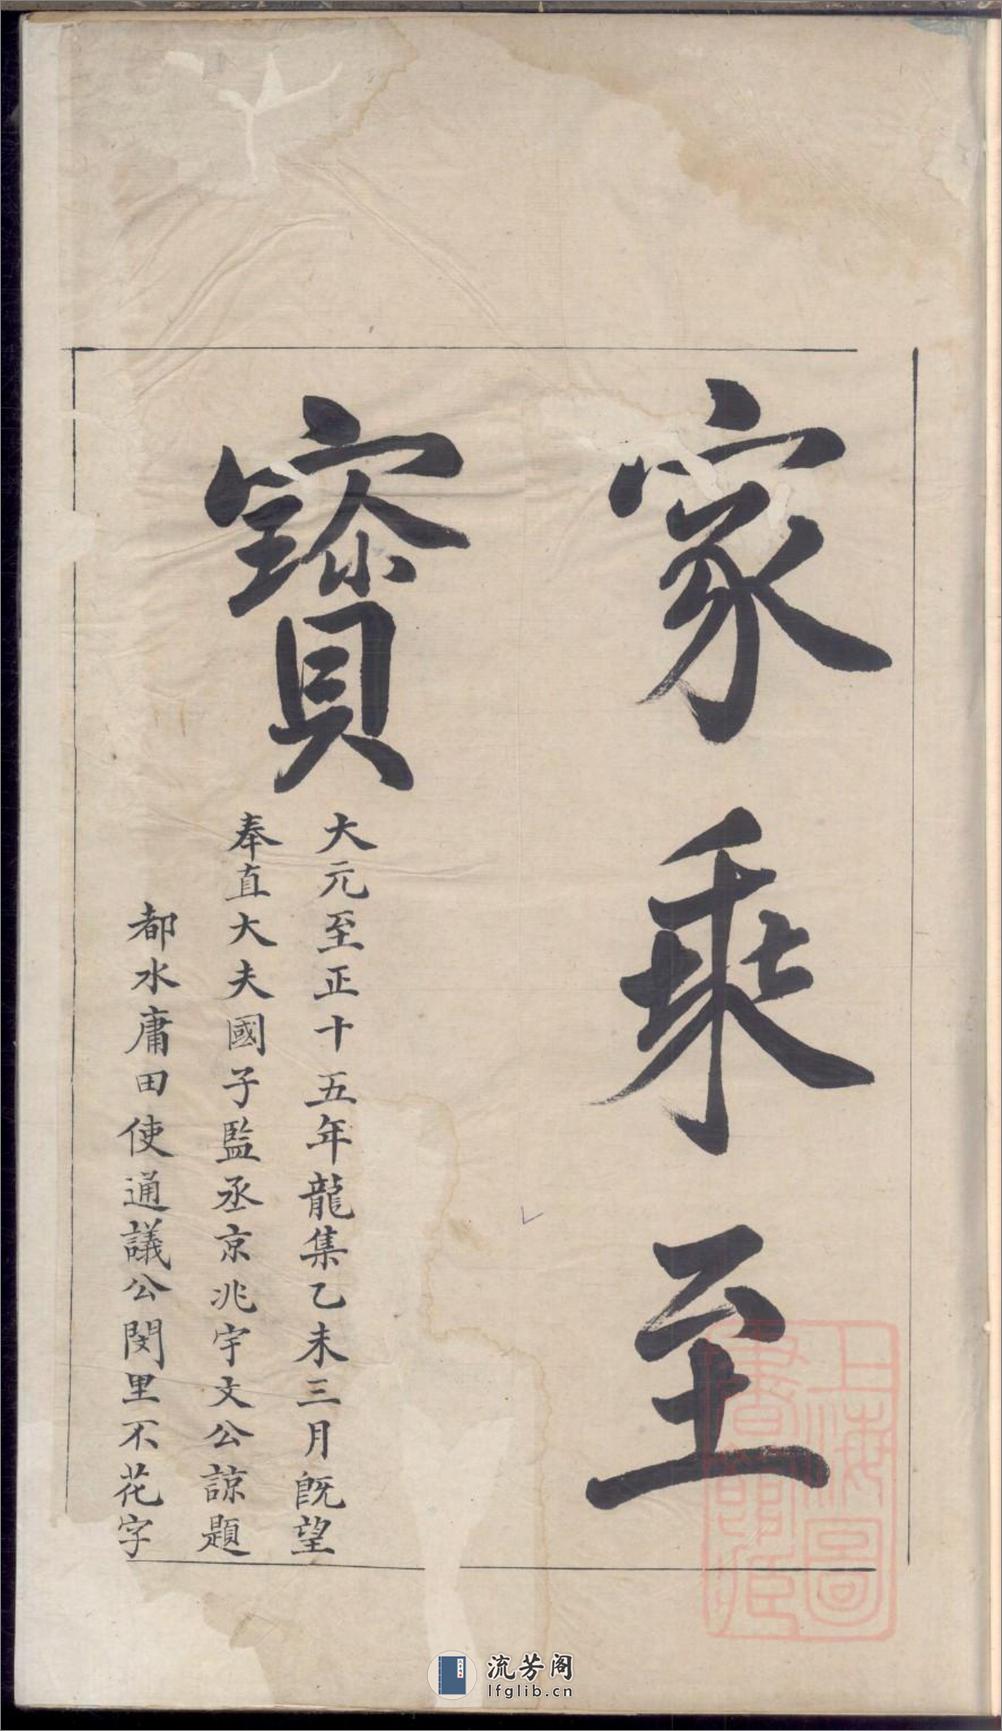 家乘至
寳
大元至正十五年龍集乙未三月既望
奉直大夫國子監丞京兆宇文公諒題
都水庸田使通議公閔里不花字
上海圖
書館藏
流芳阁
lfglib.cn